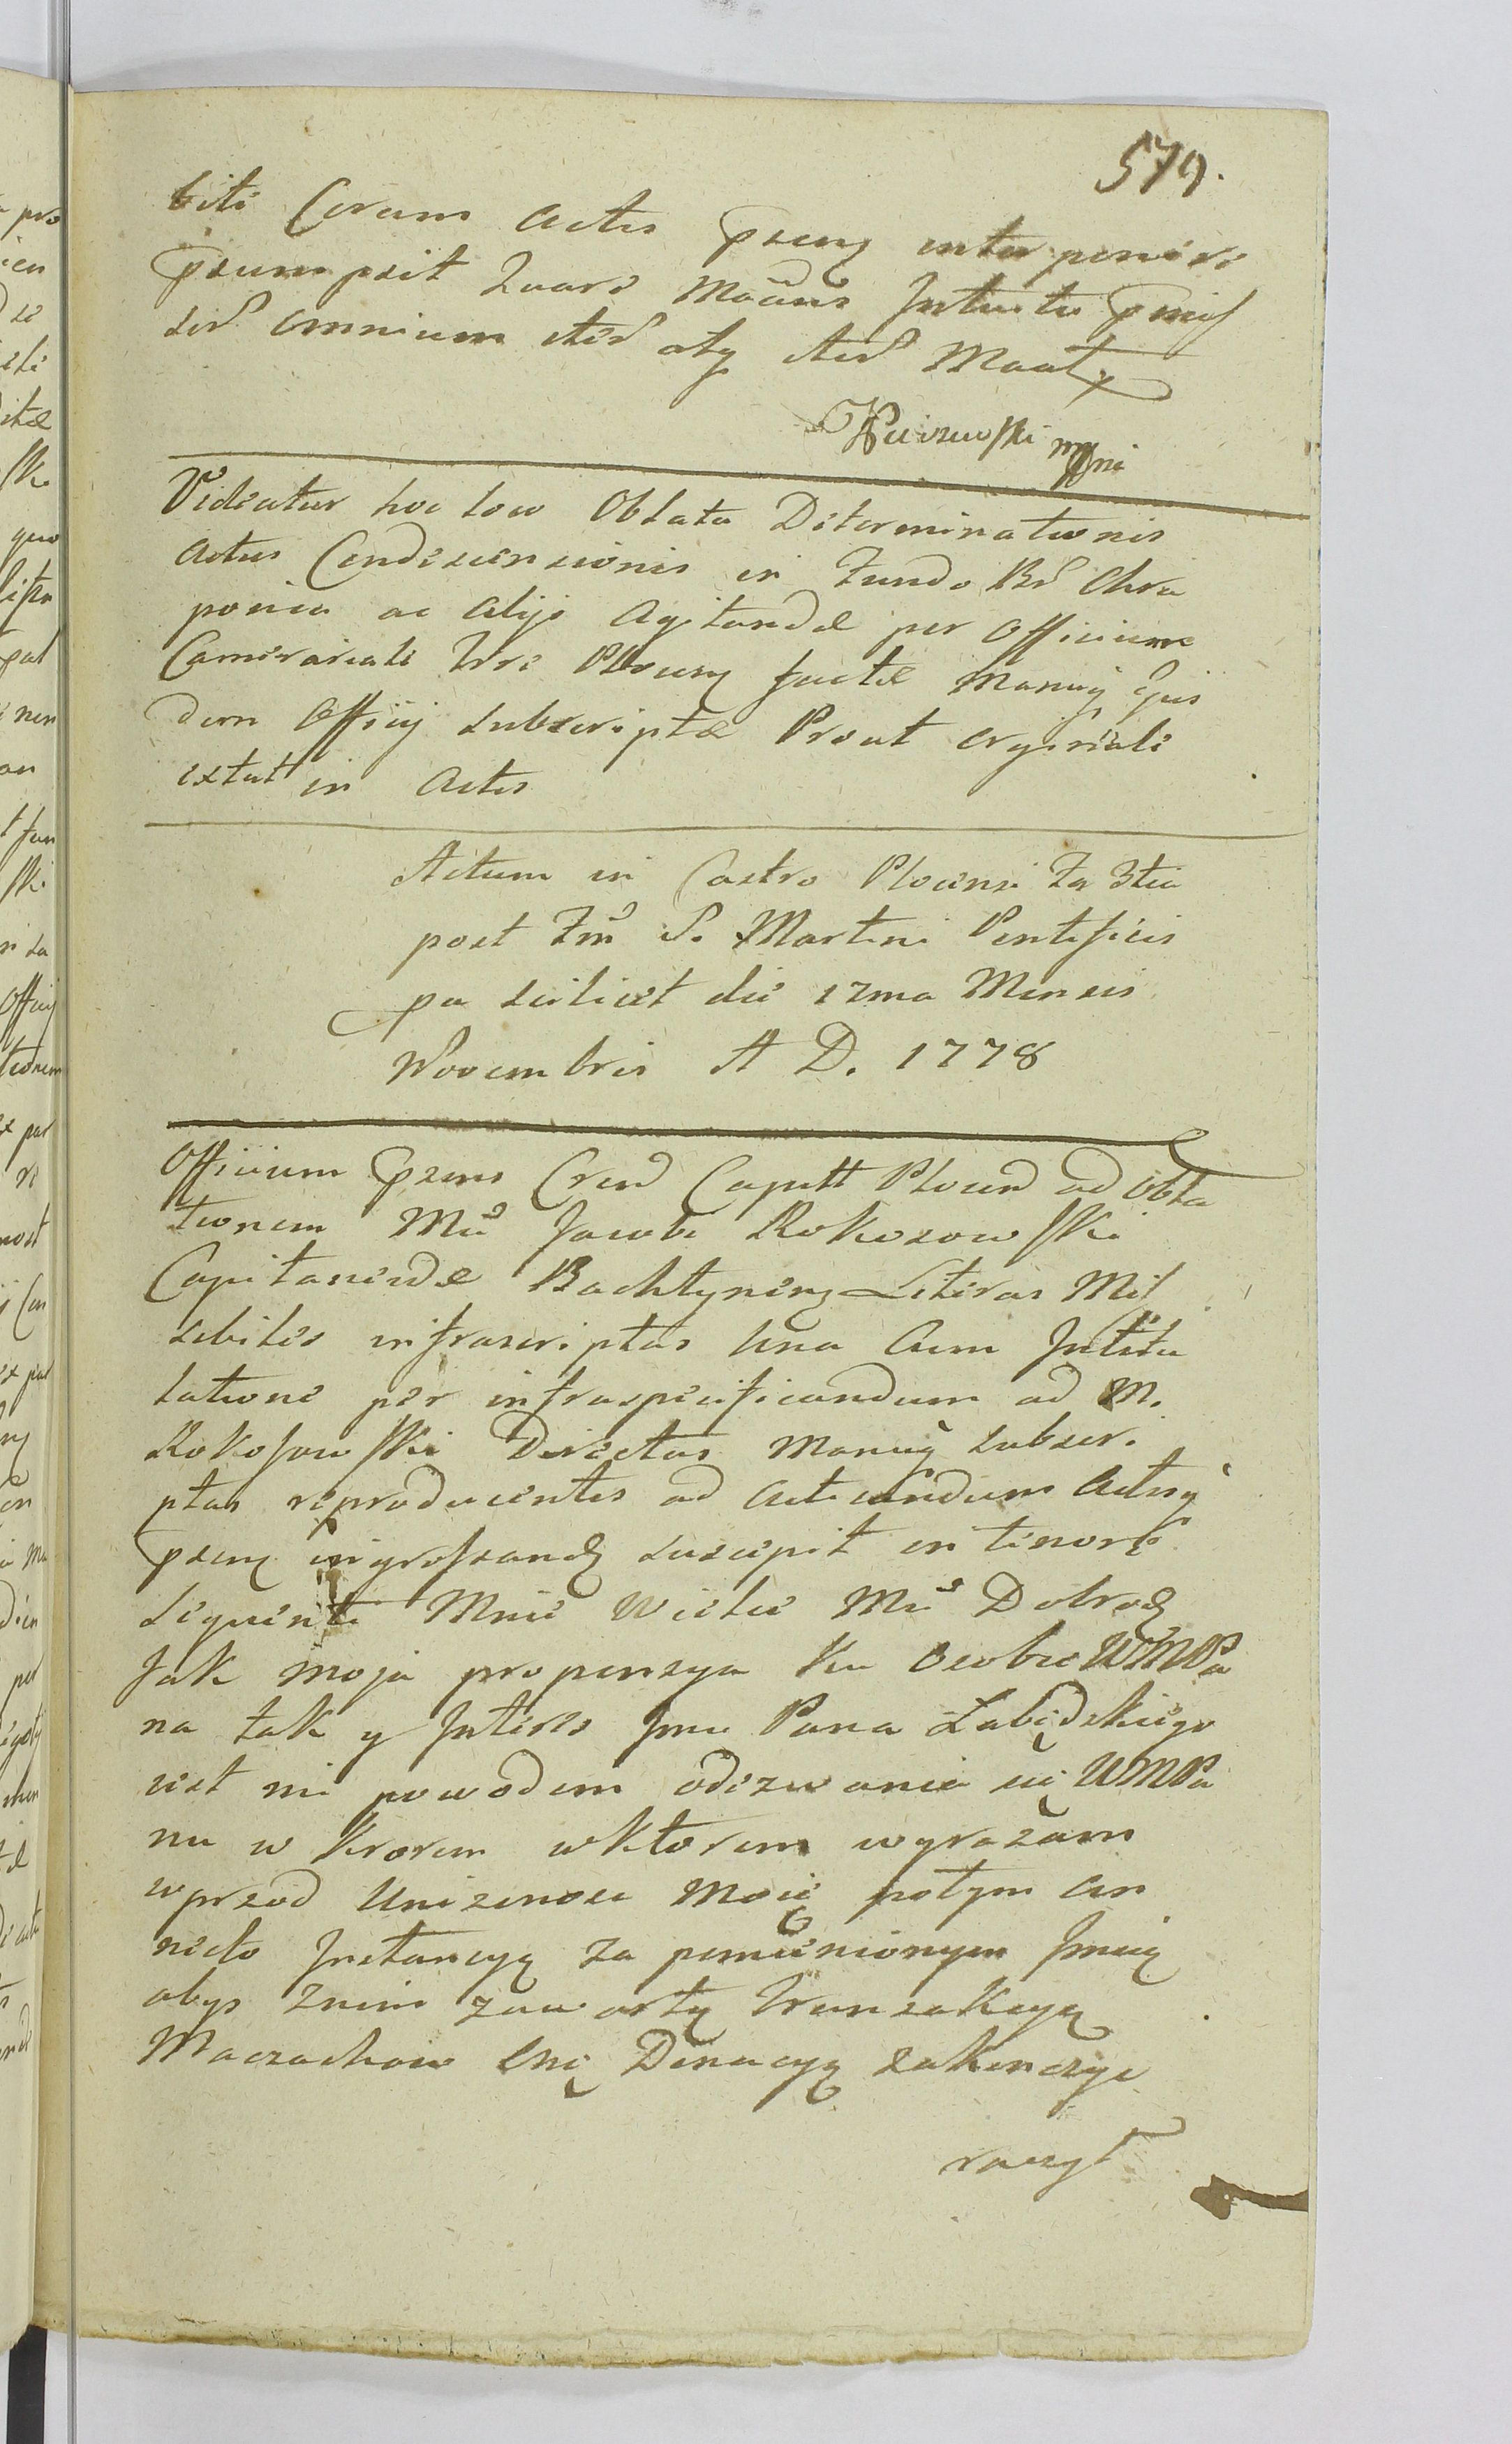 579.
biti Coram Actis prent interponere
prsumpsit Quare Mãtius Intuitu Pmis
sior omnium iter atq iter Maat
mpp
Videatur hoc loco Oblata Determinationis
actus Condescensionis in Fundo Br Chra
ponia ac Alijs Agitandæ per Officium
Camerariale Trre Plocens factæ manuq Ejus
dem Officij Subscriptæ Prout originali
extat in Actis
Actum in Castro Plocensi Fa 3tia
post Fm S. Martini Pontificis
pa scilicet die 17ma Mensis
Novembris A D. 1778
Officium Prens Cren Capitt Plocen ad obla
tionem Mci Jacobi Rokosowski
Capitanidæ Bachtynens Literas Mis
sibiles infrascriptas una Cum Intitu
latione per infraspecificandum ad M.
Rokosowski Directas Manuq subscri
ptas reproducentis ad acticandum Actisq
prent ingrossand suscepit in tenore
sequenti Mnie Wielce Mci Dobrodz
Jak moja propensya ku osobie WMPa
na tak y Interes Jmci Pana Łabędzkiego
iest mi powodem odezwania się WMPa
nu w ktorem wyrazam
wprzod Unizonosc Moię potym an
necto Instancyą za pomienionym Jmcią
abys znim zawartą Tranzakcyą
Maczachow Donacyą zakonczyc
raczył